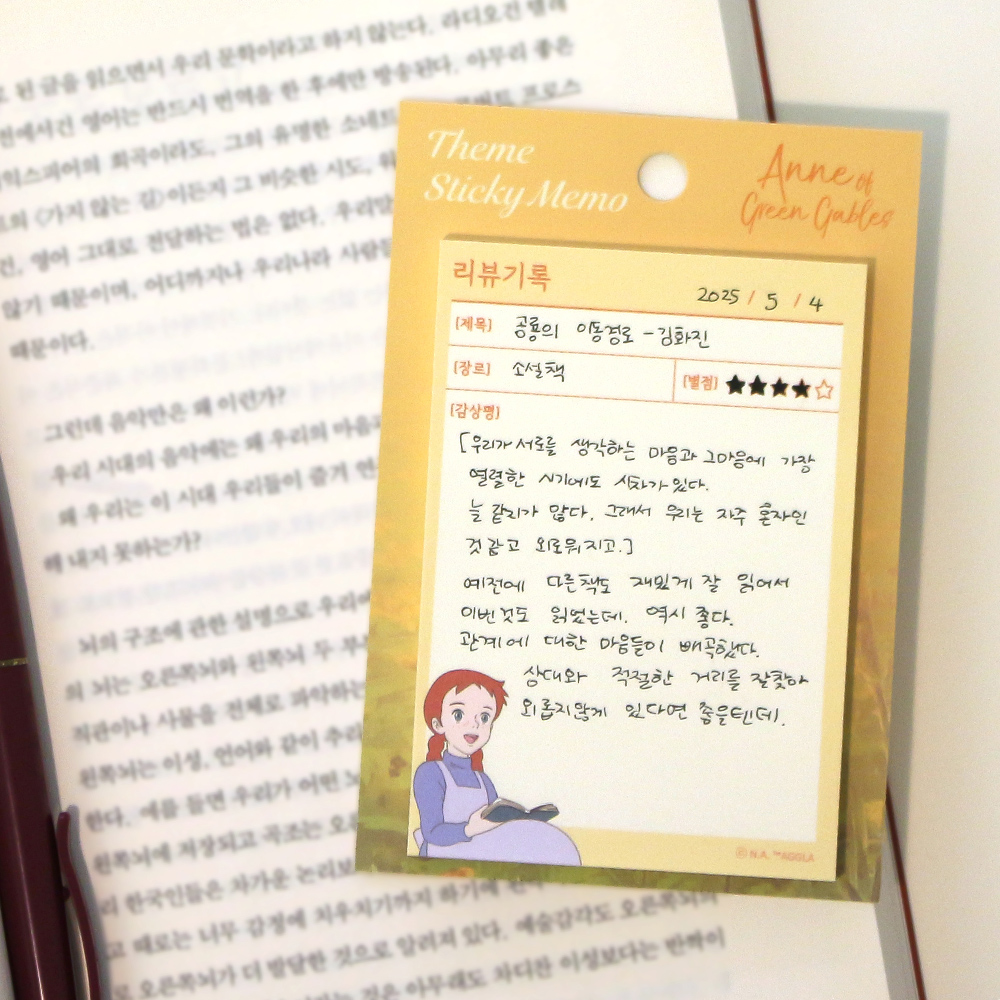 된 글을 읽으면서 우리 문학이라고 하지 않는다. 라디오건
영어는 반드시 번역을 한 후에만 방송된다. 아무리 좋은
희곡이라도, 그의 유명한 프로스
〈가지 않는 길〉이든지 그 비슷한 시도,
영어 그대로 전달하는 법은 없다.
않기 때문이며, 어디까지나 우리나라
때문이다.
그런데 음악만은 왜 이런가?
우리 시대의 음악에는 왜 우리의
왜 우리는 이 시대 우리들이 즐겨
해 내지 못하는가?
뇌의 구조에 관한 설명으로
의 뇌는 오른쪽뇌와 왼쪽뇌 두
직관이나 사물을 전체로
왼쪽뇌는 이성, 언어와 같이
한다. 예를 들면 우리가 어떤
왼쪽뇌에 저장되고 곡조는
한국인들은 차가운
때로는 너무 감정에 치우치기까지 하기에
오른쪽뇌가 더 발달한 것으로 알려져 있다. 예술감각도 오른쪽뇌의
것은 아무래도 차디찬 이성보다는
Theme
Sticky Memo
Anne of
Green Gables
리뷰기록
2025 / 5 / 4
[제목] 공룡의 이동경로 - 김화진
[장르] 소설책
[별점] ★★★★☆
[감상평]
[우리가 서로를 생각하는 마음과 그마음에 가장
열렬한 시기에도 시차가 있다.
늘 같지가 않다. 그래서 우리는 자주 혼자인
것 같고 외로워지고.]
예전에 다른책도 재밌게 잘 읽어서
이번것도 읽었는데. 역시 좋다.
관계에 대한 마음들이 빼곡했다.
상대와 적절한 거리를 잘찾아
외롭지않게 있다면 좋을텐데.
© N.A. ™AGGLA